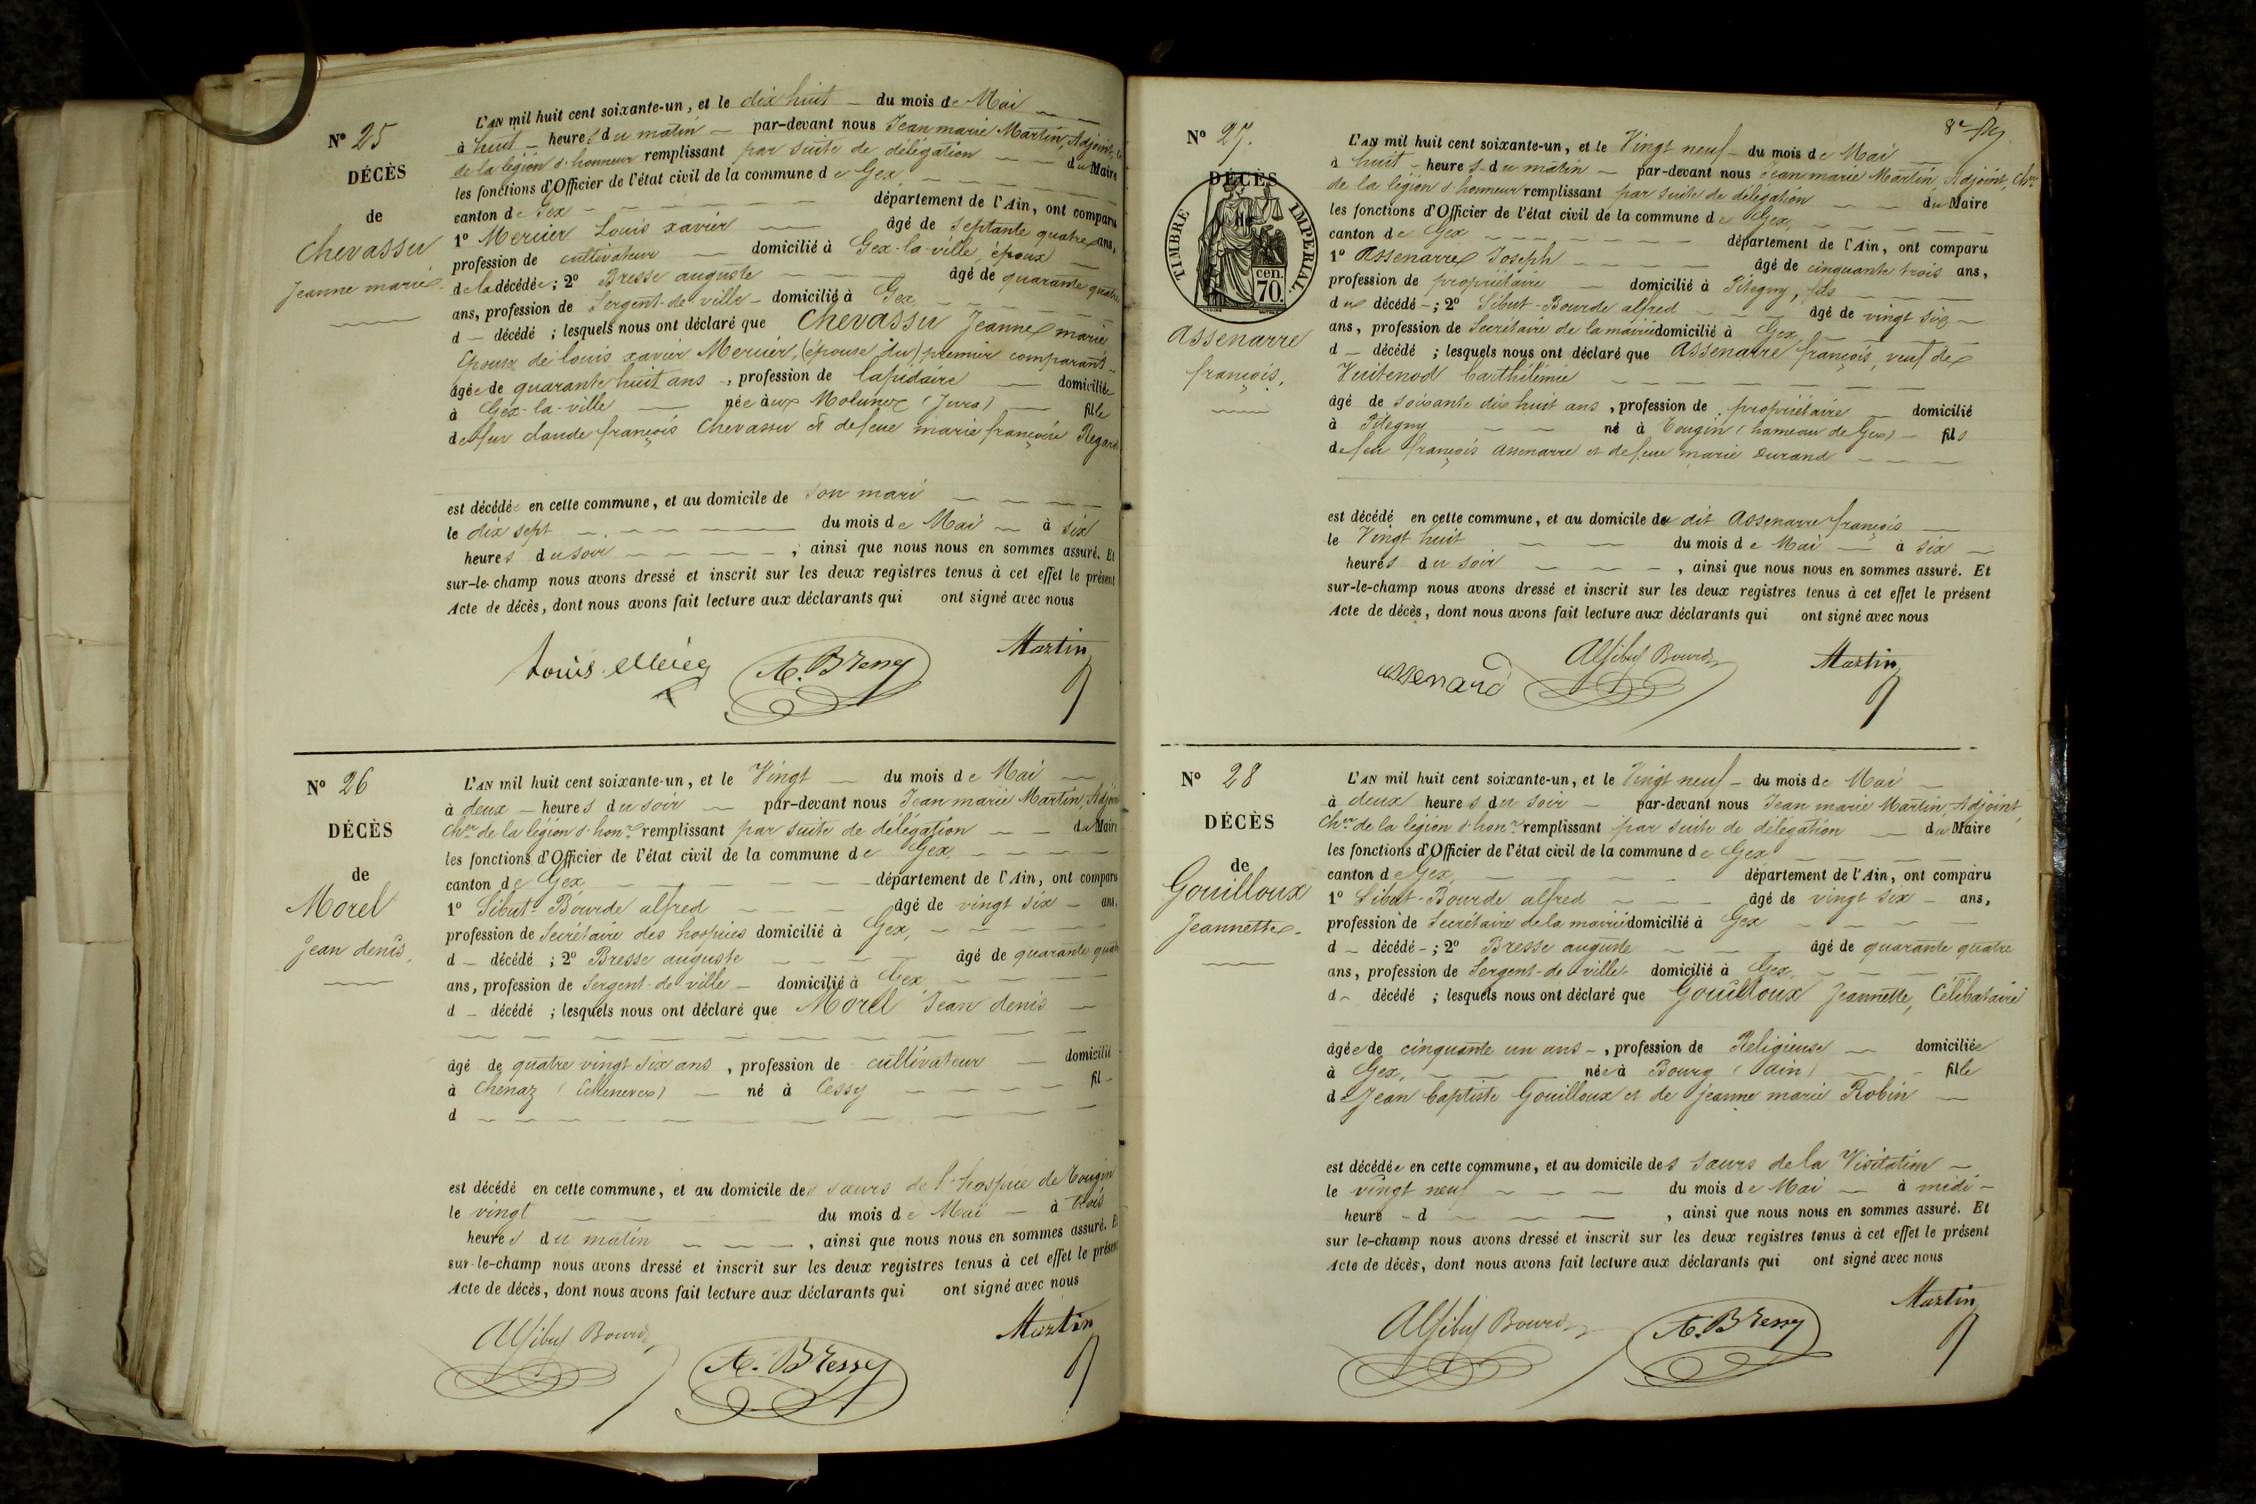 N° 25
DÉCÈS
de
Chevassu
Jeanne marie
L'AN mil huit cent soixante-un, et le dix huit — du mois de Mai
à huit — heures du matin — par-devant nous Jean marie Martin, Adjoint,
de la légion d'honneur remplissant par suite de délégation — du Maire
les fonctions d'Officier de l'état civil de la commune de Gex
canton de Gex département de l'Ain, ont comparu
1° Mercier Louis xavier âgé de septante quatre ans,
profession de cultivateur — domicilié à Gex-la-ville, époux
de la décédée; 2° Bresse auguste âgé de quarante quatre
ans, profession de Sergent-de ville — domicilié à Gex,
d — décédé ; lesquels nous ont déclaré que Chevassu Jeanne marie
Epouse de louis xavier Mercier, (épouse du) premier comparant —
âgée de quarante huit ans —, profession de lapidaire — domiciliée
à Gex-la-ville — née aux Molunes (Jura) — fille
de feu claude françois Chevassu et de feue marie françoise Regard
est décédée en cette commune, et au domicile de son mari
le dix sept du mois de Mai — à six
heures du soir , ainsi que nous nous en sommes assuré. Et
sur-le-champ nous avons dressé et inscrit sur les deux registres tenus à cet effet le présent
Acte de décès, dont nous avons fait lecture aux déclarants qui ont signé avec nous
Louis A. Bresse Martin
N° 26
DÉCÈS
de
Morel
Jean denis.
L'AN mil huit cent soixante-un, et le Vingt — du mois de Mai
à deux — heures du soir — par-devant nous Jean marie Martin, Adjoint
Cher de la légion d'honr remplissant par suite de délégation — du Maire
les fonctions d'Officier de l'état civil de la commune de Gex,
canton de Gex, département de l'Ain, ont comparu
1° Sibut-Bourde alfred âgé de vingt six — ans,
profession de Secrétaire des hospices domicilié à Gex,
d — décédé ; 2° Bresse auguste âgé de quarante quatre
ans, profession de Sergent-de ville — domicilié à Gex,
d — décédé ; lesquels nous ont déclaré que Morel Jean denis —
âgé de quatre vingt six ans, profession de cultivateur — domicilié
à Chenaz (Echenevex) — né à Cessy fil —
d
est décédé en cette commune, et au domicile des sœurs de l'hospice de Tougin
le vingt du mois de Mai — à trois
heures du matin , ainsi que nous nous en sommes assuré. Et
sur-le-champ nous avons dressé et inscrit sur les deux registres tenus à cet effet le présent
Acte de décès, dont nous avons fait lecture aux déclarants qui ont signé avec nous
Alf Sibut Bourde A. Bresse Martin
8e
N° 27.
DÉCÈS
TIMBRE IMPERIAL
cen.
70.
Assenarre
françois,
L'AN mil huit cent soixante-un, et le Vingt neuf — du mois de Mai
à huit — heures du matin — par-devant nous Jean marie Martin, Adjoint, Cher
de la légion d'honneur remplissant par suite de délégation — du Maire
les fonctions d'Officier de l'état civil de la commune de Gex,
canton de Gex département de l'Ain, ont comparu
1° Assenarre Joseph âgé de cinquante trois ans,
profession de propriétaire — domicilié à Pitegny, fils
du décédé —; 2° Sibut-Bourde alfred âgé de vingt six —
ans, profession de Secrétaire de la mairie domicilié à Gex,
d — décédé ; lesquels nous ont déclaré que Assenarre françois, veuf de
Vuitenod barthélémie
âgé de soixante dix huit ans, profession de propriétaire — domicilié
à Pitegny né à Tougin (hameau de Gex) — fils
de feu françois assenarre et de feue marie Durand
est décédé en cette commune, et au domicile du dit Assenarre françois
le Vingt huit du mois de Mai — à six —
heures du soir , ainsi que nous nous en sommes assuré. Et
sur-le-champ nous avons dressé et inscrit sur les deux registres tenus à cet effet le présent
Acte de décès, dont nous avons fait lecture aux déclarants qui ont signé avec nous
assenard Alf Sibut Bourde Martin
N° 28
DÉCÈS
de
Gouilloux
Jeannette.
L'AN mil huit cent soixante-un, et le Vingt neuf — du mois de Mai
à deux heures du soir — par-devant nous Jean marie Martin, Adjoint,
Cher de la légion d'honr remplissant par suite de délégation — du Maire
les fonctions d'Officier de l'état civil de la commune de Gex
canton de Gex, département de l'Ain, ont comparu
1° Sibut-Bourde alfred âgé de vingt six — ans,
profession de Secrétaire de la mairie domicilié à Gex
d — décédé —; 2° Bresse auguste âgé de quarante quatre
ans, profession de Sergent-de ville domicilié à Gex,
d — décédé ; lesquels nous ont déclaré que Gouilloux Jeannette, Célibataire
âgée de cinquante un ans —, profession de Religieuse — domiciliée
à Gex, née à Bourg (ain) — fille
de Jean baptiste Gouilloux et de jeanne marie Robin —
est décédée en cette commune, et au domicile des sœurs de la Visitation —
le vingt neuf du mois de Mai — à midi —
heure — d , ainsi que nous nous en sommes assuré. Et
sur le-champ nous avons dressé et inscrit sur les deux registres tenus à cet effet le présent
Acte de décès, dont nous avons fait lecture aux déclarants qui ont signé avec nous
Alf Sibut Bourde A. Bresse Martin